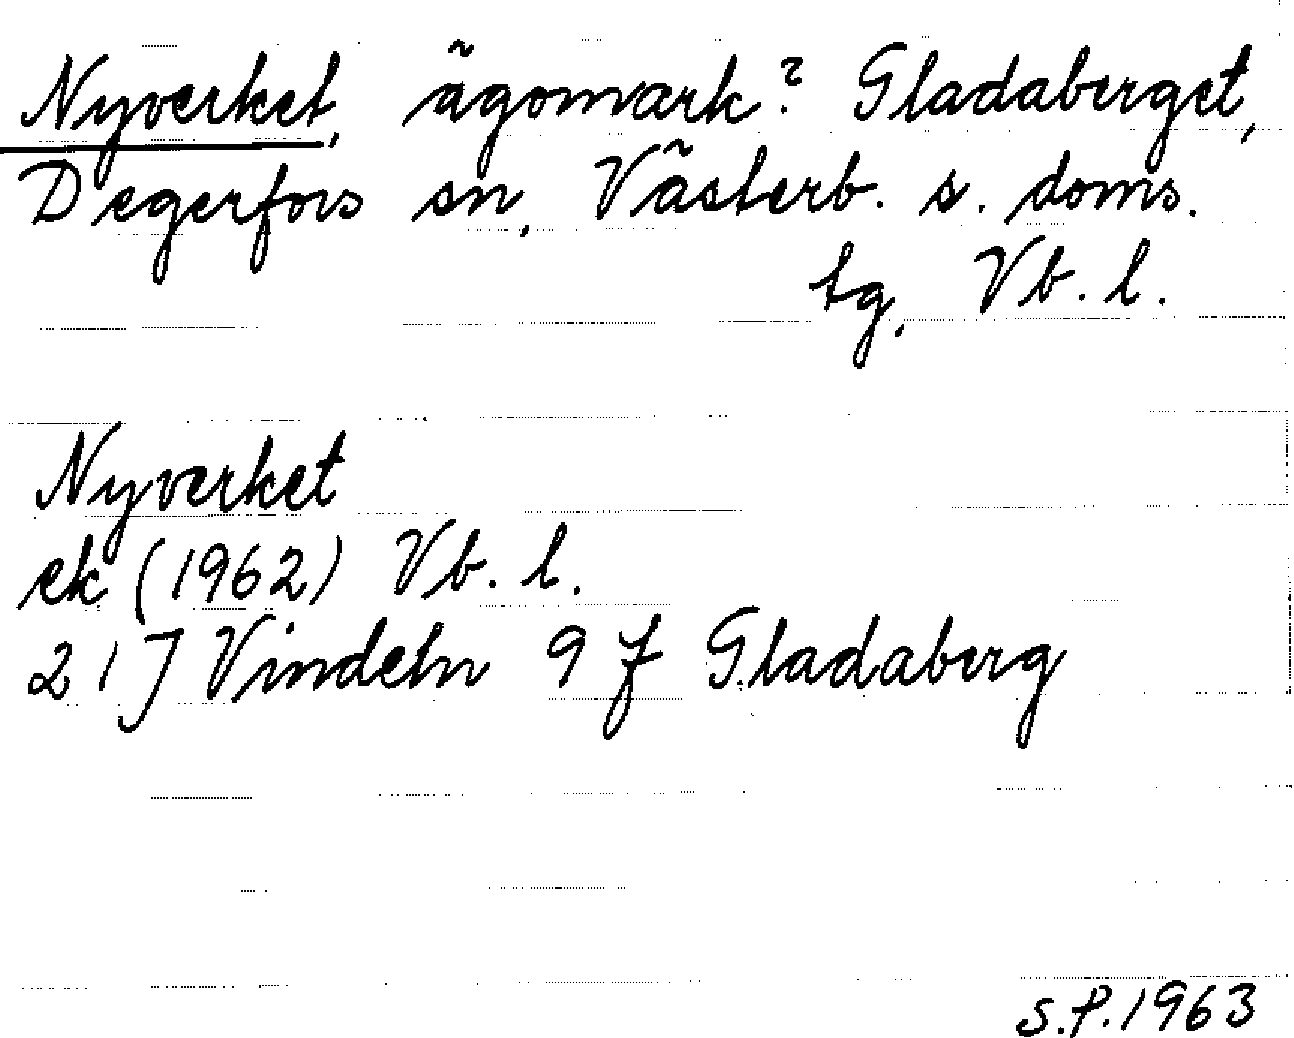 Nyverket, ägomark? Gladaberget,
Degerfors sn, Västerb. s. doms.
tg, Vb. l.
Nyverket
ek (1962) Vb. l.
21J Vindeln 9 f Gladaberg
S.P. 1963